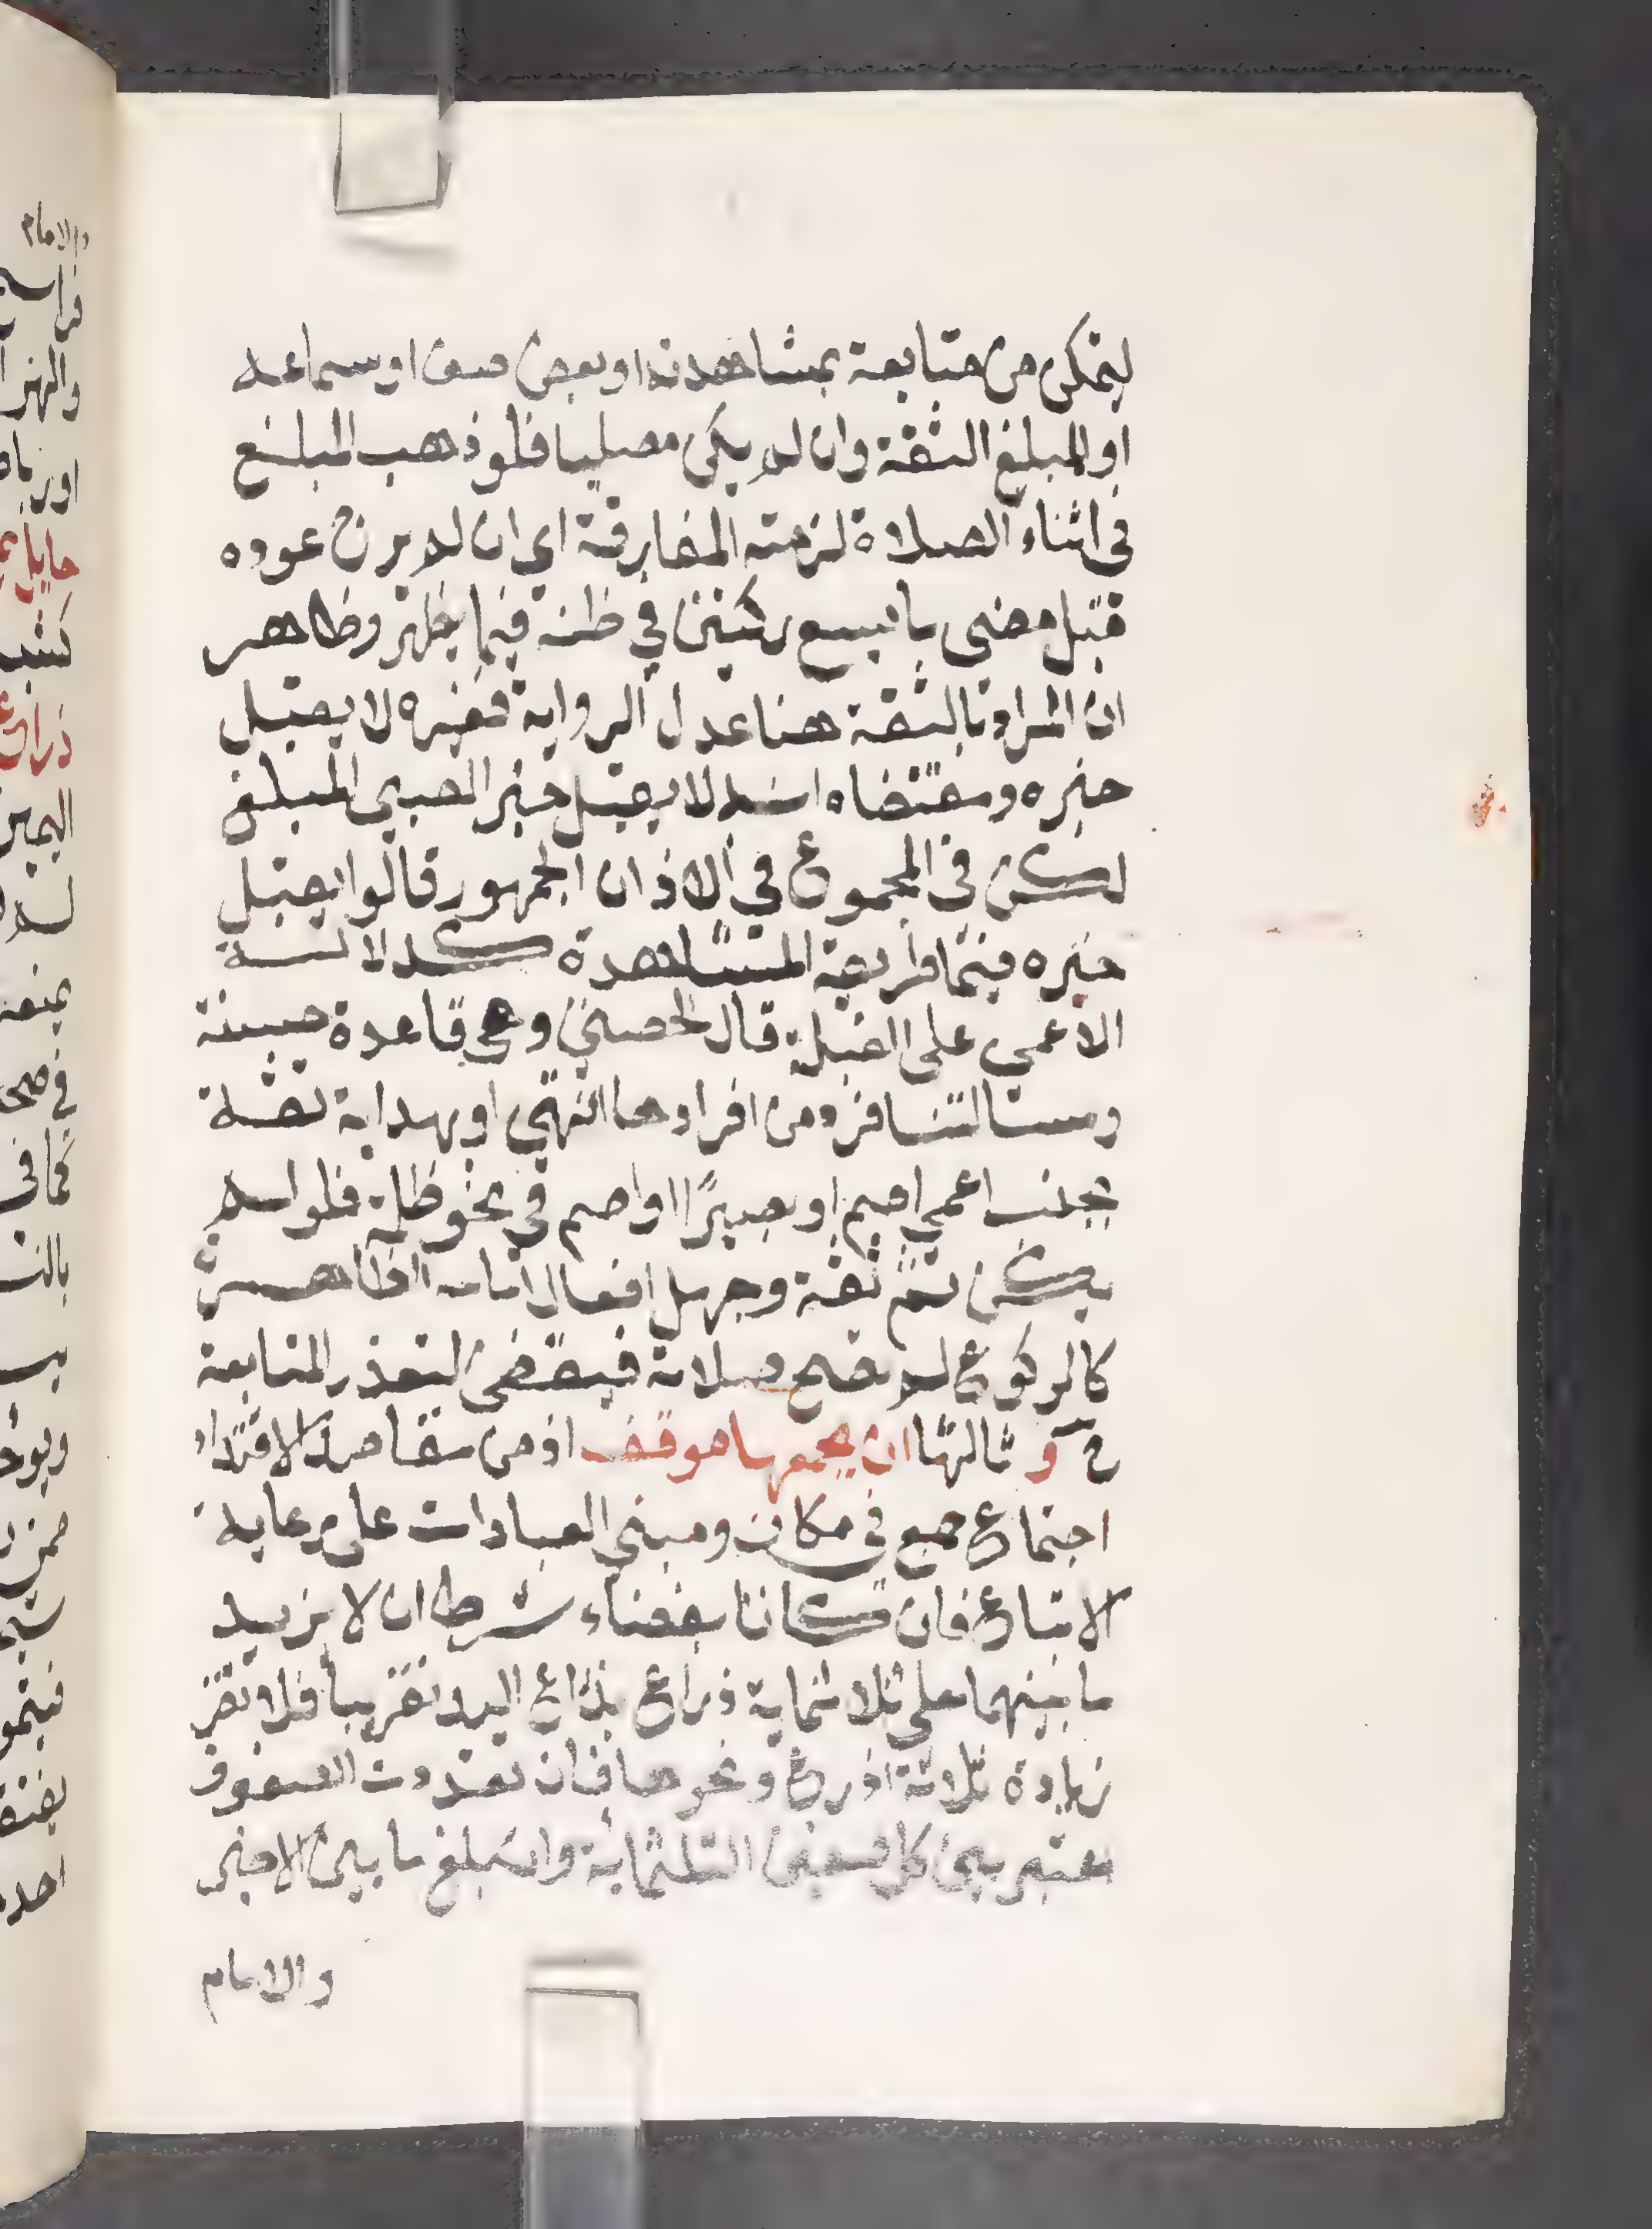 ليتمكن من متابعة بمشاهدته او بعض صف او سماعه
او المبلغ الثقة وان لم يكن مصليا فلو ذهب المبلغ
في اثناء الصلاة لزمته المفارقة اي ان لم يرج عوده
قبل مضى ما يسع ركنين في ظنه فيما يظهر وظاهر
ان المراد بالثقة هنا عدل الرواية فغيره لا يقبل
خبره ومقتضاه انه لا يقبل خبر الصبي المبلغ
لكن في المجموع في الاذان الجمهور قالوا يقبل
خبره فيما طريقه المشاهدة كدلالته
الاعمى على القبلة قال الحصني وهي قاعدة حسنة
ومسالتنا فرد من افرادها انتهى او بهداية ثقة
بجنب اعمى اصم او بصيرًا او اصم في نحو ظلمة فلو لم
يكن ثَمَّ ثقة وجهل افعال امامه الظاهرة
كالركوع لم تصح صلاته فيقضى لتعذر المتابعة
ح و ثالثها ان يجمعهما موقف اذ من مقاصد الاقتداء
اجتماع جمع في مكان ومبنى العبادات على رعاية
الاتباع فان كانا بفضاء شرط ان لا يزيد
ما بينهما على ثلاثماية ذراع بذراع اليد تقريبا فلا تضر
زيادة ثلاثة اذرع ونحوها فان تعددت الصفوف
اعتبر بين كل صفين الثلثماية وان بلغ ما بين الاخير
والامام